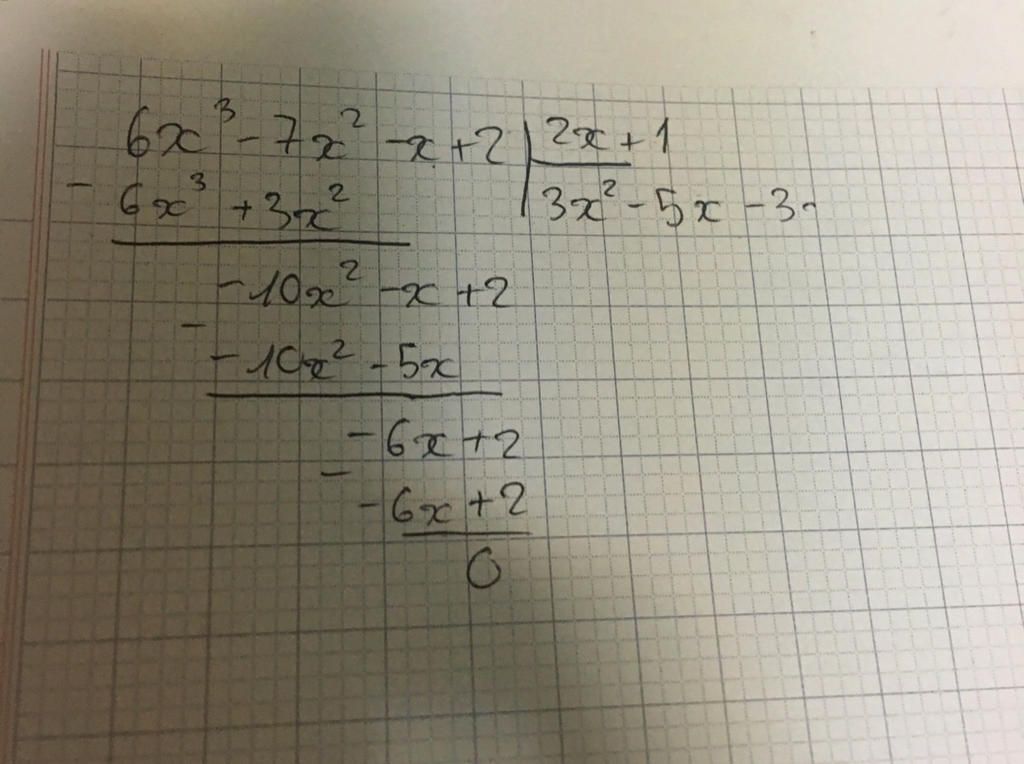 6x³ - 7x² - x + 2 | 2x + 1
- 6x³ + 3x² | 3x² - 5x - 3
- 10x² - x + 2
-
- 10x² - 5x
- 6x + 2
-
- 6x + 2
0